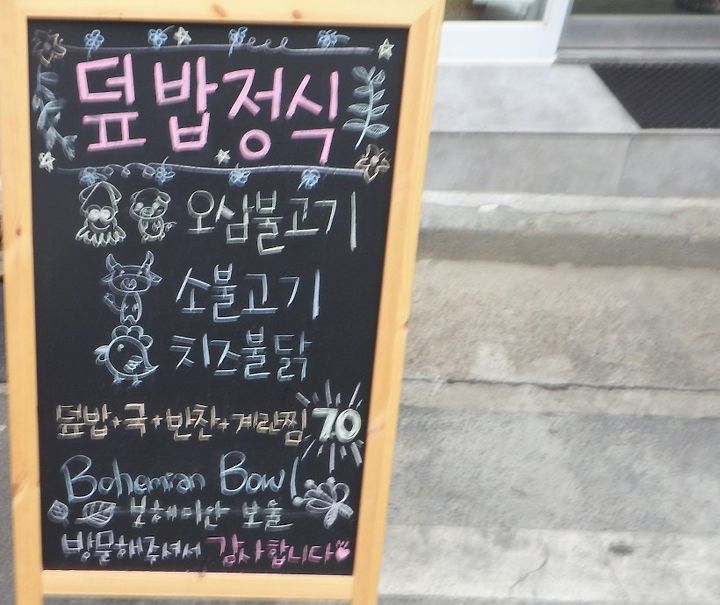 덮밥정식
오삼불고기
소불고기
치즈불닭
덮밥+국+반찬+계란찜 7.0
Bohemian Bowl
보헤미안 보울
방문해주셔서 감사합니다